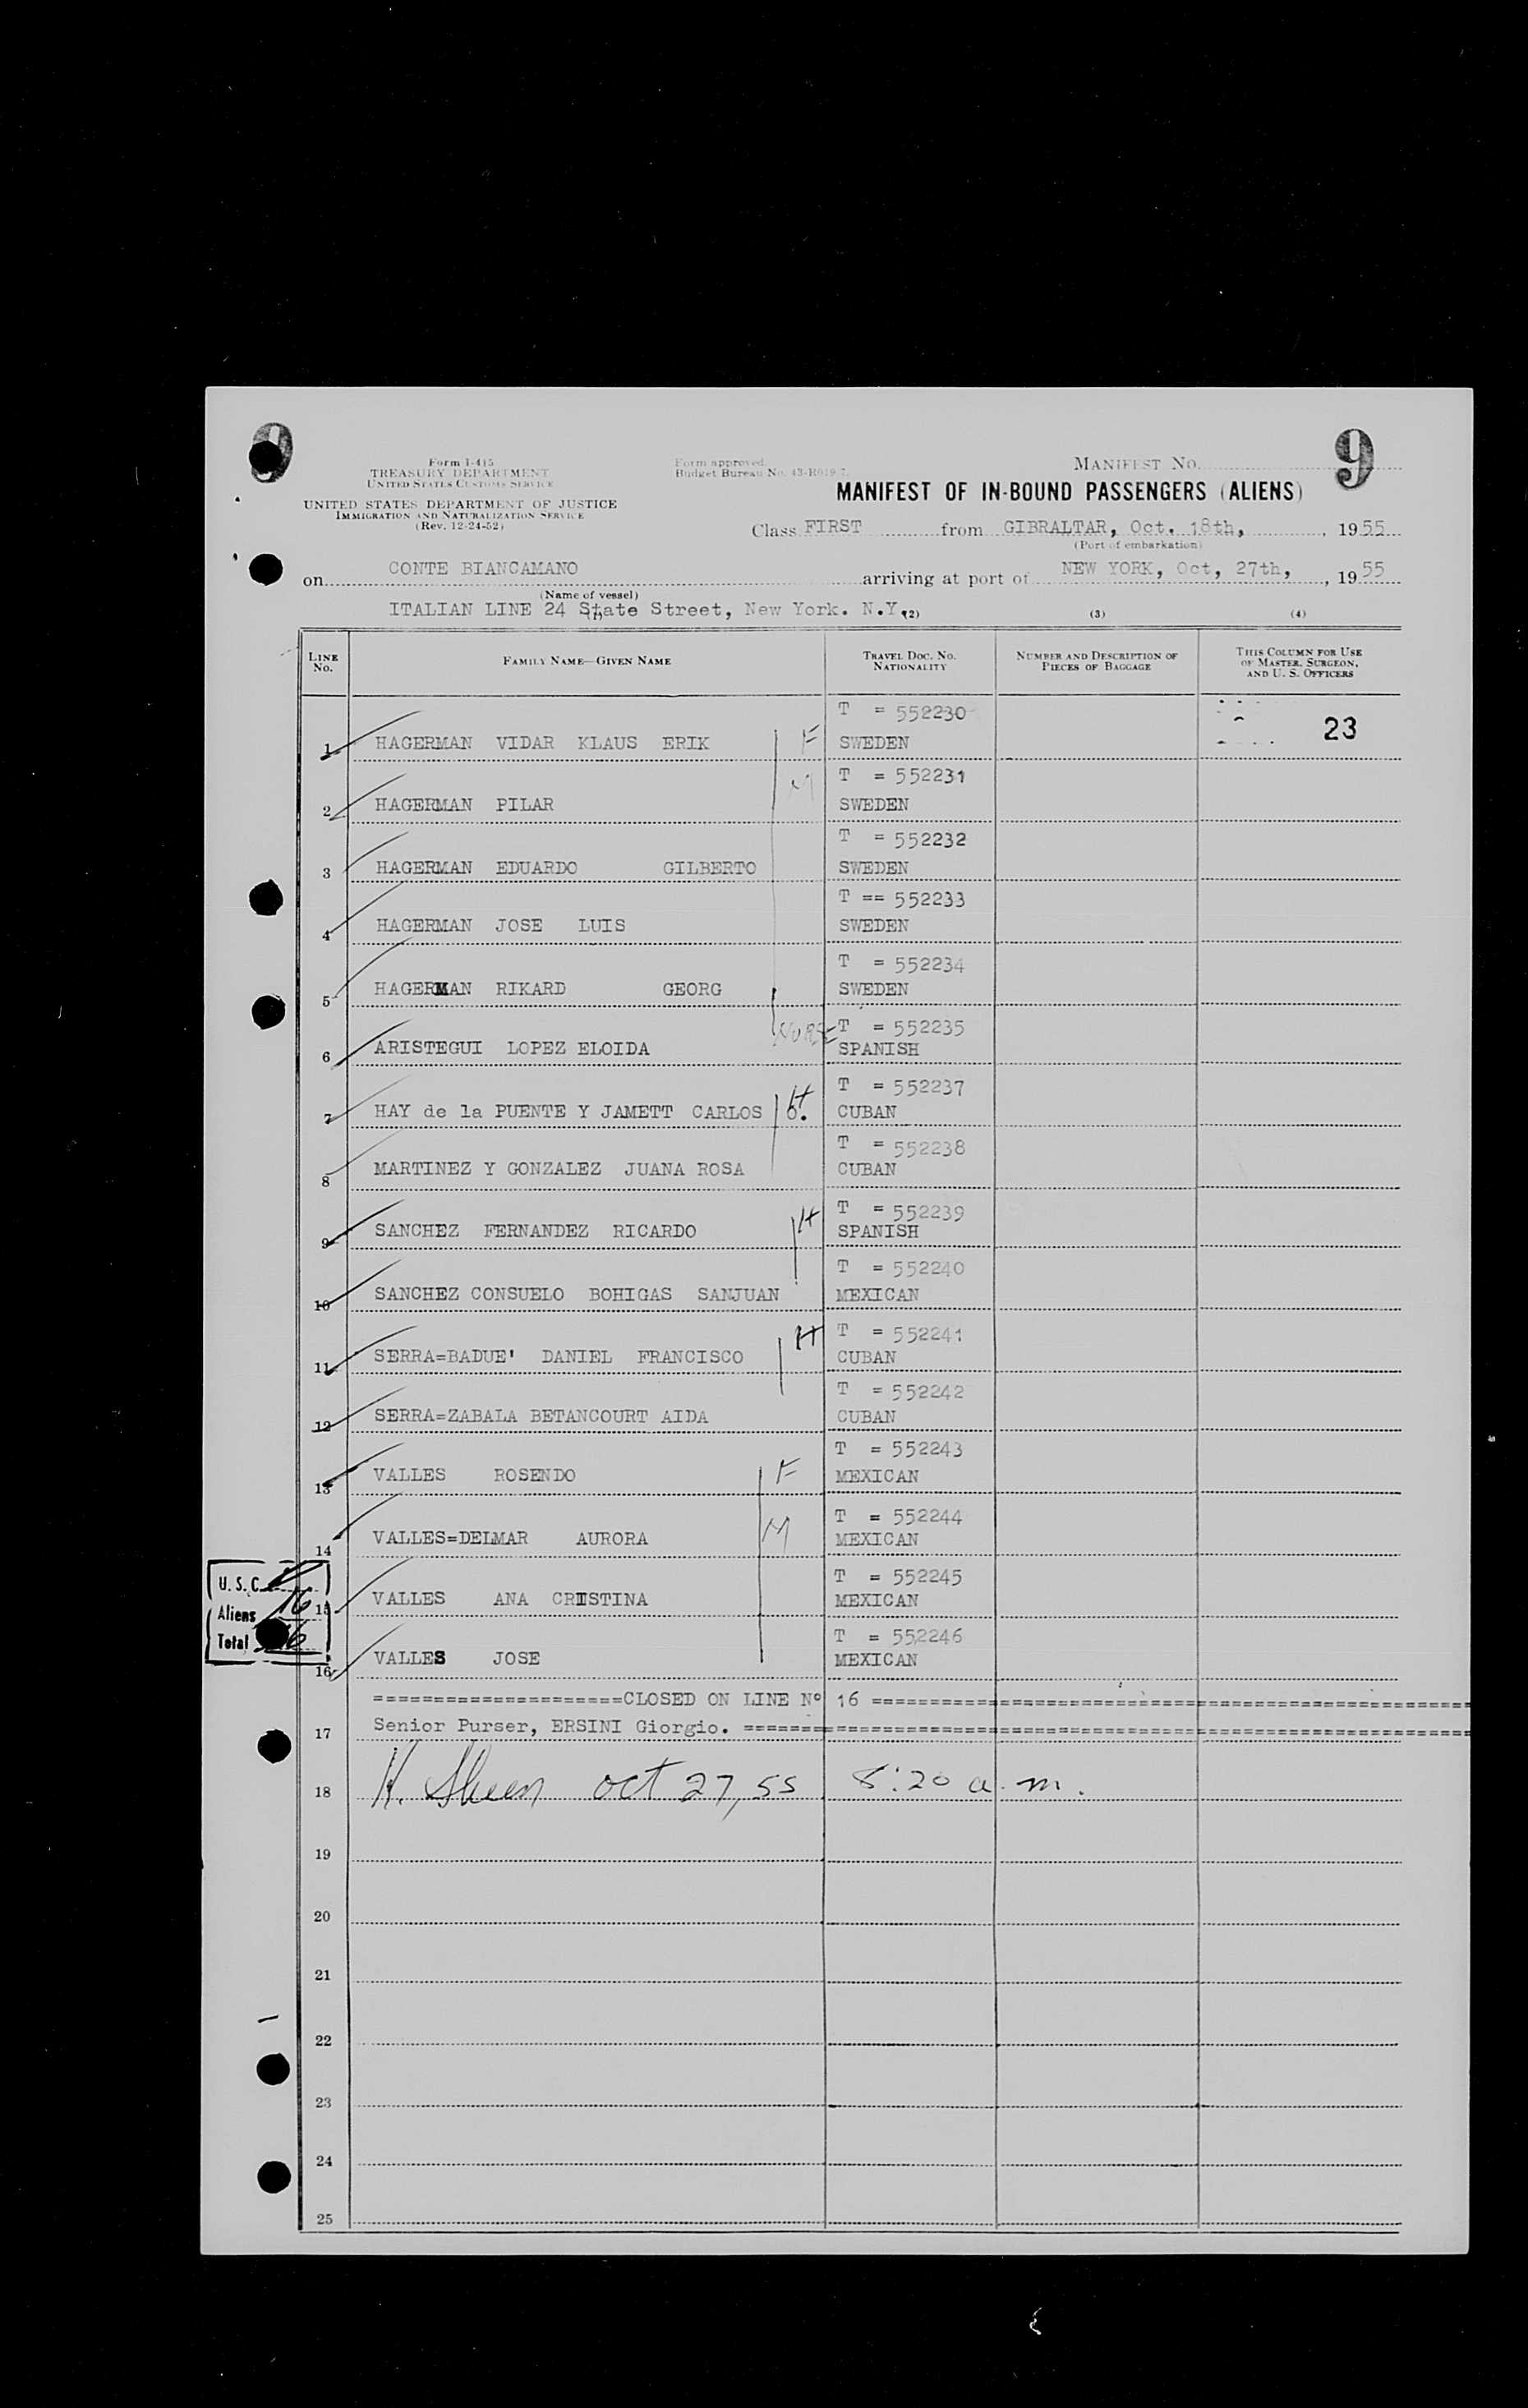 9
9
Form I-415
TREASURY DEPARTMENT
UNITED STATES CUSTOMS SERVICE
UNITED STATES DEPARTMENT OF JUSTICE
IMMIGRATION AND NATURALIZATION SERVICE
(Rev. 12-24-52)
Form approved.
Budget Bureau No. 43-R019.7.
MANIFEST NO.
MANIFEST OF IN-BOUND PASSENGERS (ALIENS)
Class FIRST from GIBRALTAR, Oct. 18th, , 1955
(Port of embarkation)
on CONTE BIANCAMANO arriving at port of NEW YORK, Oct, 27th, , 1955
(Name of vessel)
ITALIAN LINE 24 State Street, New York. N.Y.
(1) (2) (3) (4)
LINE NO. FAMILY NAME—GIVEN NAME TRAVEL DOC. NO. NATIONALITY NUMBER AND DESCRIPTION OF PIECES OF BAGGAGE THIS COLUMN FOR USE OF MASTER, SURGEON, AND U. S. OFFICERS
T = 552230
1 HAGERMAN VIDAR KLAUS ERIK F SWEDEN 23
T = 552231
2 HAGERMAN PILAR M SWEDEN
T = 552232
3 HAGERMAN EDUARDO GILBERTO SWEDEN
T == 552233
4 HAGERMAN JOSE LUIS SWEDEN
T = 552234
5 HAGERMAN RIKARD GEORG SWEDEN
NURSE T = 552235
6 ARISTEGUI LOPEZ ELOIDA SPANISH
T = 552237
7 HAY de la PUENTE Y JAMETT CARLOS H CUBAN
T = 552238
8 MARTINEZ Y GONZALEZ JUANA ROSA CUBAN
T = 552239
9 SANCHEZ FERNANDEZ RICARDO H SPANISH
T = 552240
10 SANCHEZ CONSUELO BOHIGAS SANJUAN MEXICAN
T = 552241
11 SERRA=BADUE' DANIEL FRANCISCO H CUBAN
T = 552242
12 SERRA=ZABALA BETANCOURT AIDA CUBAN
T = 552243
13 VALLES ROSENDO F MEXICAN
T = 552244
14 VALLES=DELMAR AURORA M MEXICAN
T = 552245
15 VALLES ANA CRISTINA MEXICAN
T = 552246
16 VALLES JOSE MEXICAN
U. S. C.
Aliens 16
Total 16
=====================CLOSED ON LINE Nº 16 ==================================================
17 Senior Purser, ERSINI Giorgio. ==============================================================
18 H. Sheen oct 27, 55 8:20 a.m.
19
20
21
22
23
24
25